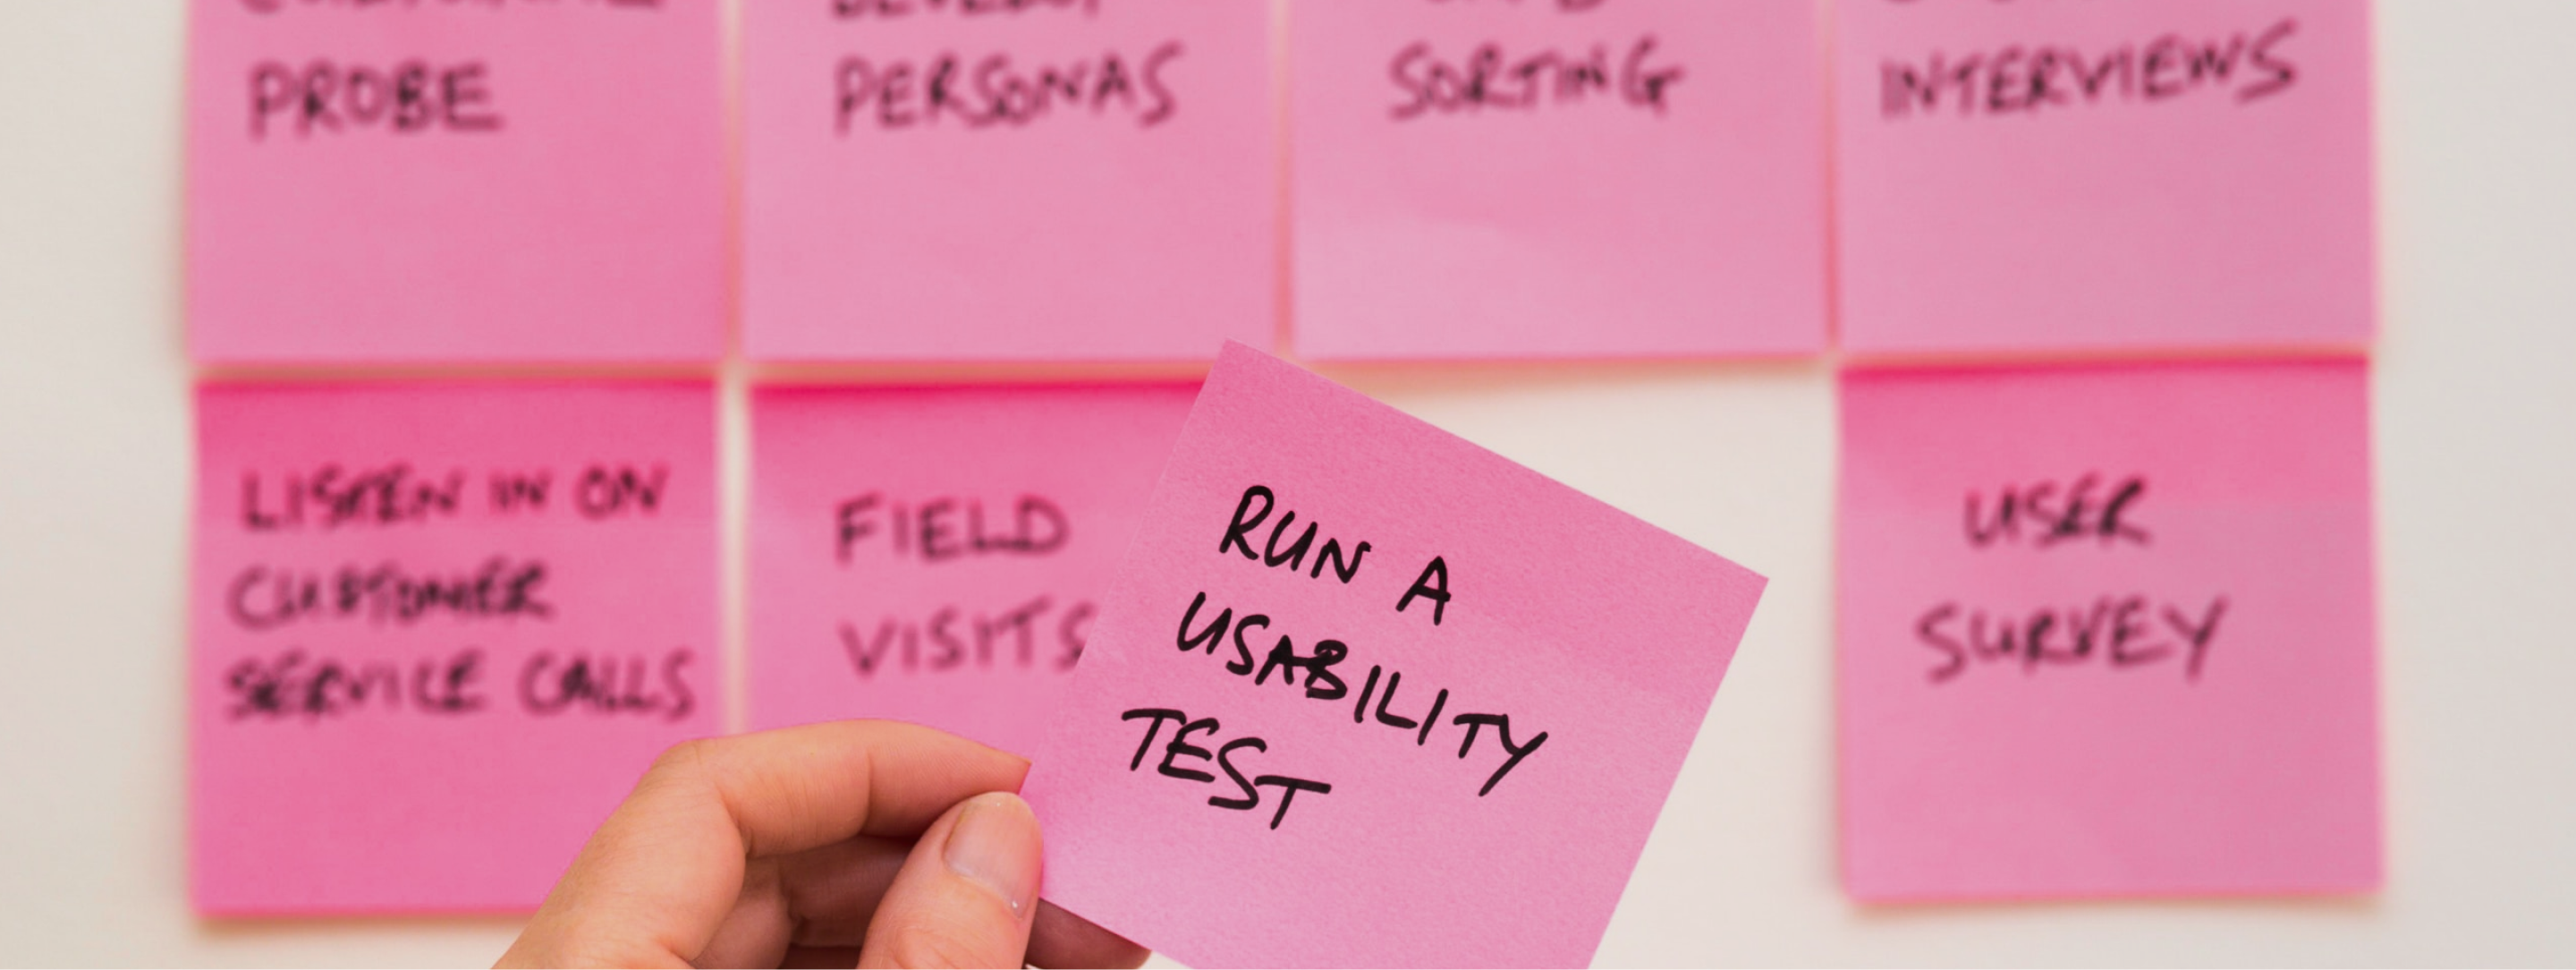 PROBE
PERSONAS
SORTING
INTERVIEWS
LISTEN IN ON
CUSTOMER
SERVICE CALLS
FIELD
VISITS
RUN A
USABILITY
TEST
USER
SURVEY